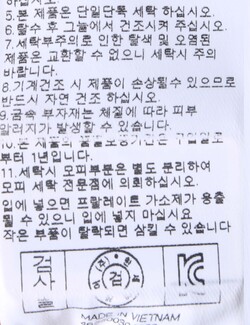 5.본 제품은 단일단독 세탁 하십시오.
6.탈수 후 그늘에서 건조시켜 주십시오.
7.세탁부주의로 인한 탈색 및 오염된
제품은 교환할 수 없으니 세탁시 주의
바랍니다.
8.기계건조 시 제품이 손상될수 있으므로
반드시 자연 건조 하십시오.
9.금속 부자재는 체질에 따라 피부
알러지가 발생할 수 있습니다.
10.본 제품의 품질보증기간은 구입일로
부터 1년입니다.
11.세탁시 모피부분은 별도 분리하여
모피 세탁 전문점에 의뢰하십시오.
입에 넣으면 프탈레이트 가소제가 용출
될 수 있으니 입에 넣지 마십시요
작은 부품이 탈락되면 삼킬 수 있습니다
검 검
MADE IN VIETNAM